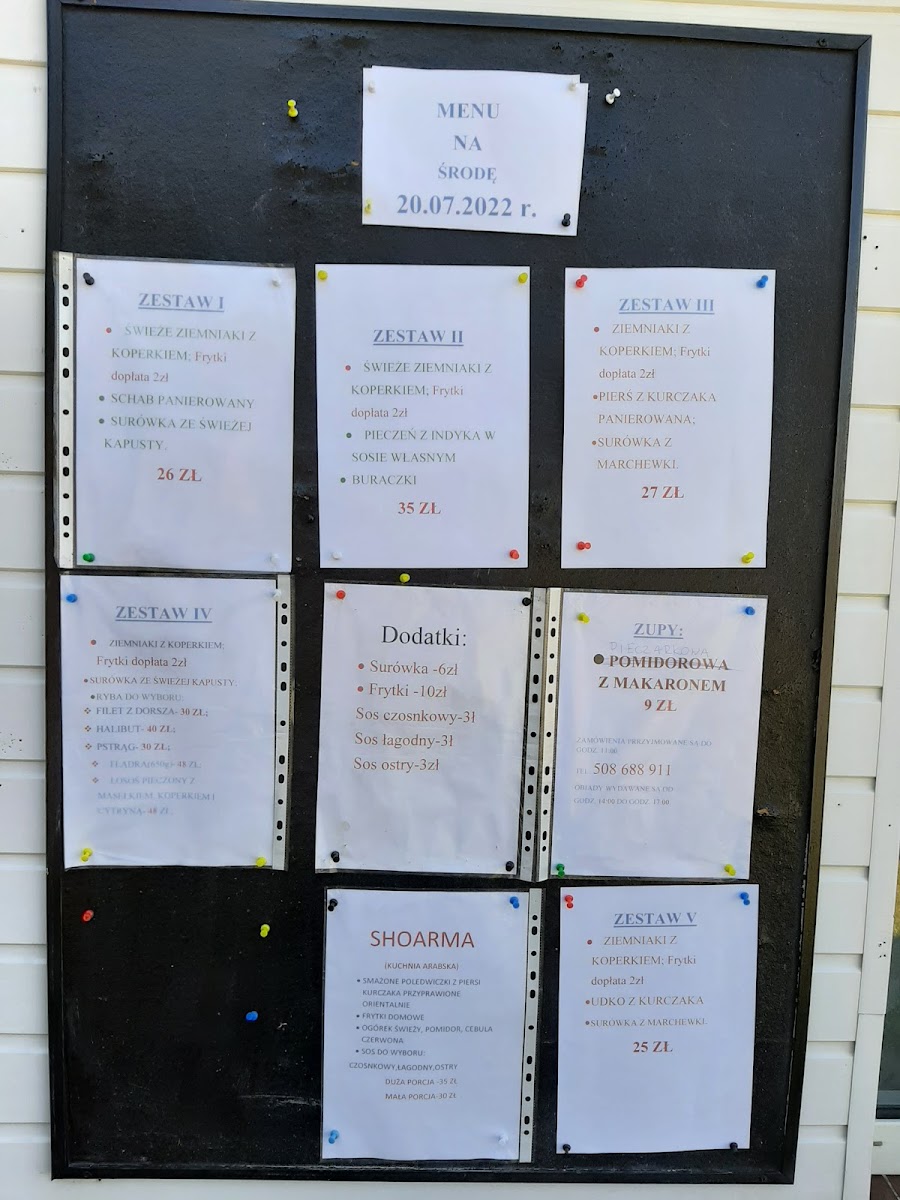 MENU
NA
ŚRODĘ
20.07.2022 r.
ZESTAW I
ŚWIEŻE ZIEMNIAKI Z
KOPERKIEM; Frytki
dopłata 2zł
SCHAB PANIEROWANY
SURÓWKA ZE ŚWIEŻEJ
KAPUSTY.
26 ZŁ
ZESTAW II
ŚWIEŻE ZIEMNIAKI Z
KOPERKIEM; Frytki
dopłata 2zł
PIECZEŃ Z INDYKA W
SOSIE WŁASNYM
BURACZKI
35 ZŁ
ZESTAW III
ZIEMNIAKI Z
KOPERKIEM; Frytki
dopłata 2zł
PIERŚ Z KURCZAKA
PANIEROWANA;
SURÓWKA Z
MARCHEWKI.
27 ZŁ
ZESTAW IV
ZIEMNIAKI Z KOPERKIEM;
Frytki dopłata 2zł
SURÓWKA ZE ŚWIEŻEJ KAPUSTY.
RYBA DO WYBORU:
FILET Z DORSZA- 30 ZŁ;
HALIBUT- 40 ZŁ;
PSTRĄG- 30 ZŁ;
FLĄDRA(650g)- 48 ZŁ;
ŁOSOŚ PIECZONY Z
MASEŁKIEM, KOPERKIEM I
CYTRYNĄ- 48 ZŁ;
Dodatki:
Surówka -6zł
Frytki -10zł
Sos czosnkowy-3ł
Sos łagodny-3ł
Sos ostry-3zł
ZUPY:
PIECZARKOWA
POMIDOROWA
Z MAKARONEM
9 ZŁ
ZAMÓWIENIA PRZYJMOWANE SĄ DO
GODZ. 13:00
TEL. 508 688 911
OBIADY WYDAWANE SĄ OD
GODZ. 14:00 DO GODZ. 17:00
SHOARMA
(KUCHNIA ARABSKA)
SMAŻONE POLĘDWICZKI Z PIERSI
KURCZAKA PRZYPRAWIONE
ORIENTALNIE
FRYTKI DOMOWE
OGÓREK ŚWIEŻY, POMIDOR, CEBULA
CZERWONA
SOS DO WYBORU:
CZOSNKOWY,ŁAGODNY,OSTRY
DUŻA PORCJA -35 ZŁ
MAŁA PORCJA-30 ZŁ
ZESTAW V
ZIEMNIAKI Z
KOPERKIEM; Frytki
dopłata 2zł
UDKO Z KURCZAKA
SURÓWKA Z MARCHEWKI.
25 ZŁ